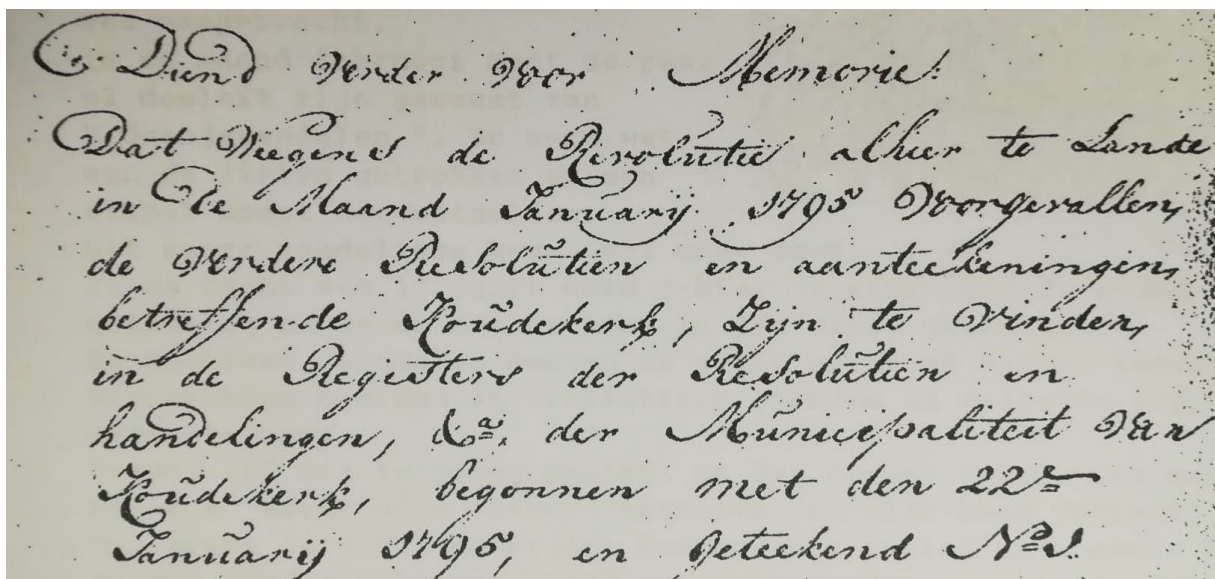 Diend verder voor Memorie!
Dat Weegens de Revolutie alhier te Lande
in de Maand Januarij 1795 voorgevallen,
de verdere Resolutien en aanteekeningen,
betreffende Koudekerk, Zijn te vinden,
in de Registers der Resolutien en
handelingen, &a. der Municipaliteit van
Koudekerk, begonnen met den 22e
Januarij 1795, en geteekend No. 1.